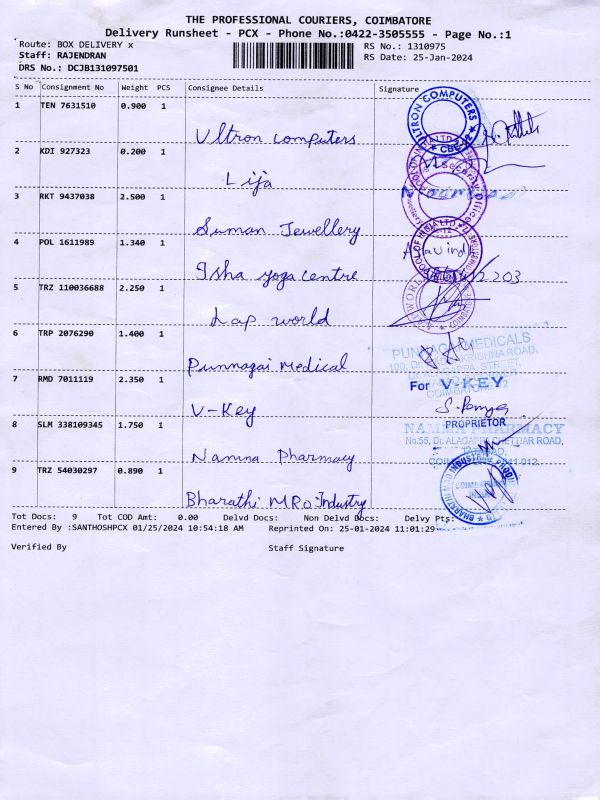 THE PROFESSIONAL COURIERS, COIMBATORE
Delivery Runsheet - PCX - Phone No.:0422-3505555 - Page No.:1
Route: BOX DELIVERY x RS No.: 1310975
Staff: RAJENDRAN RS Date: 25-Jan-2024
DRS No.: DCJB131097501
S No Consignment No Weight PCS Consignee Details Signature
1 TEN 7631510 0.900 1
Ultron computers
ULTRON COMPUTERS
★ CBE-12 ★
2 KDI 927323 0.200 1
Lija
3 RKT 9437038 2.500 1
Suman Jewellery
4 POL 1611989 1.340 1
Isha yoga centre
5 TRZ 110036688 2.250 1
Lap world
6 TRP 2076290 1.400 1
Punnagai Medical
PUNNAGAI MEDICALS
KRISHNA ROAD,
STREET,
7 RMD 7011119 2.350 1
V-Key
For V-KEY
PROPRIETOR
8 SLM 338109345 1.750 1
Namna Pharmacy
NAMMA PHARMACY
No.55, Dr. ALAGAPPA CHETTIAR ROAD,
9 TRZ 54030297 0.890 1
Bharathi MRO Industry
Tot Docs: 9 Tot COD Amt: 0.00 Delvd Docs: Non Delvd Docs: Delvy Pts:
Entered By :SANTHOSHPCX 01/25/2024 10:54:18 AM Reprinted On: 25-01-2024 11:01:29
Verified By Staff Signature